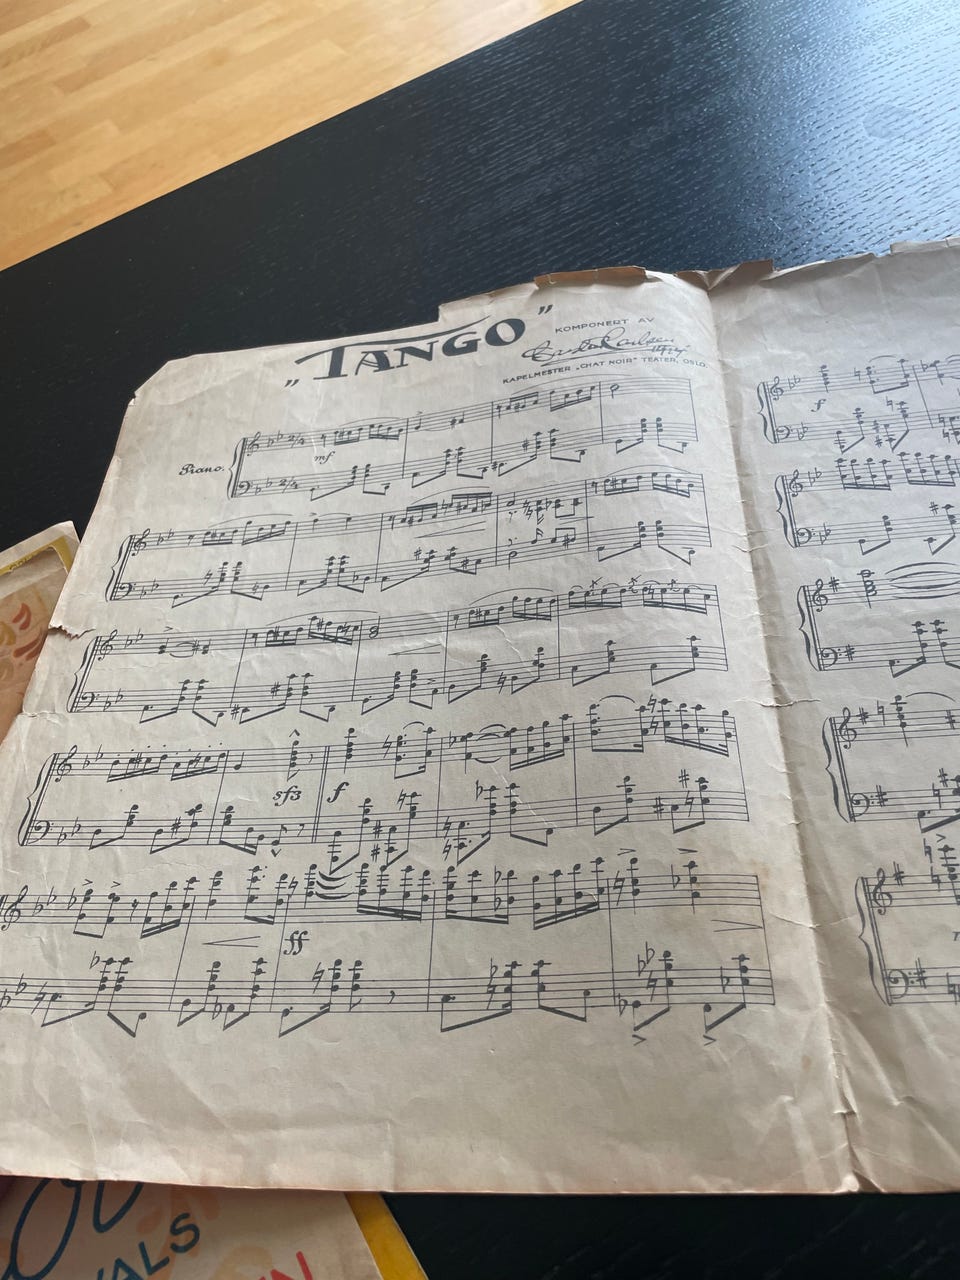 „TANGO”
KOMPONERT AV
KAPELMESTER „CHAT NOIR” TEATER, OSLO.
Piano.
mf
sfz f
ff
f
VALS